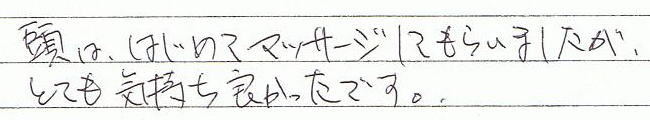 頭は、はじめてマッサージしてもらいましたが、
とても気持ち良かったです。